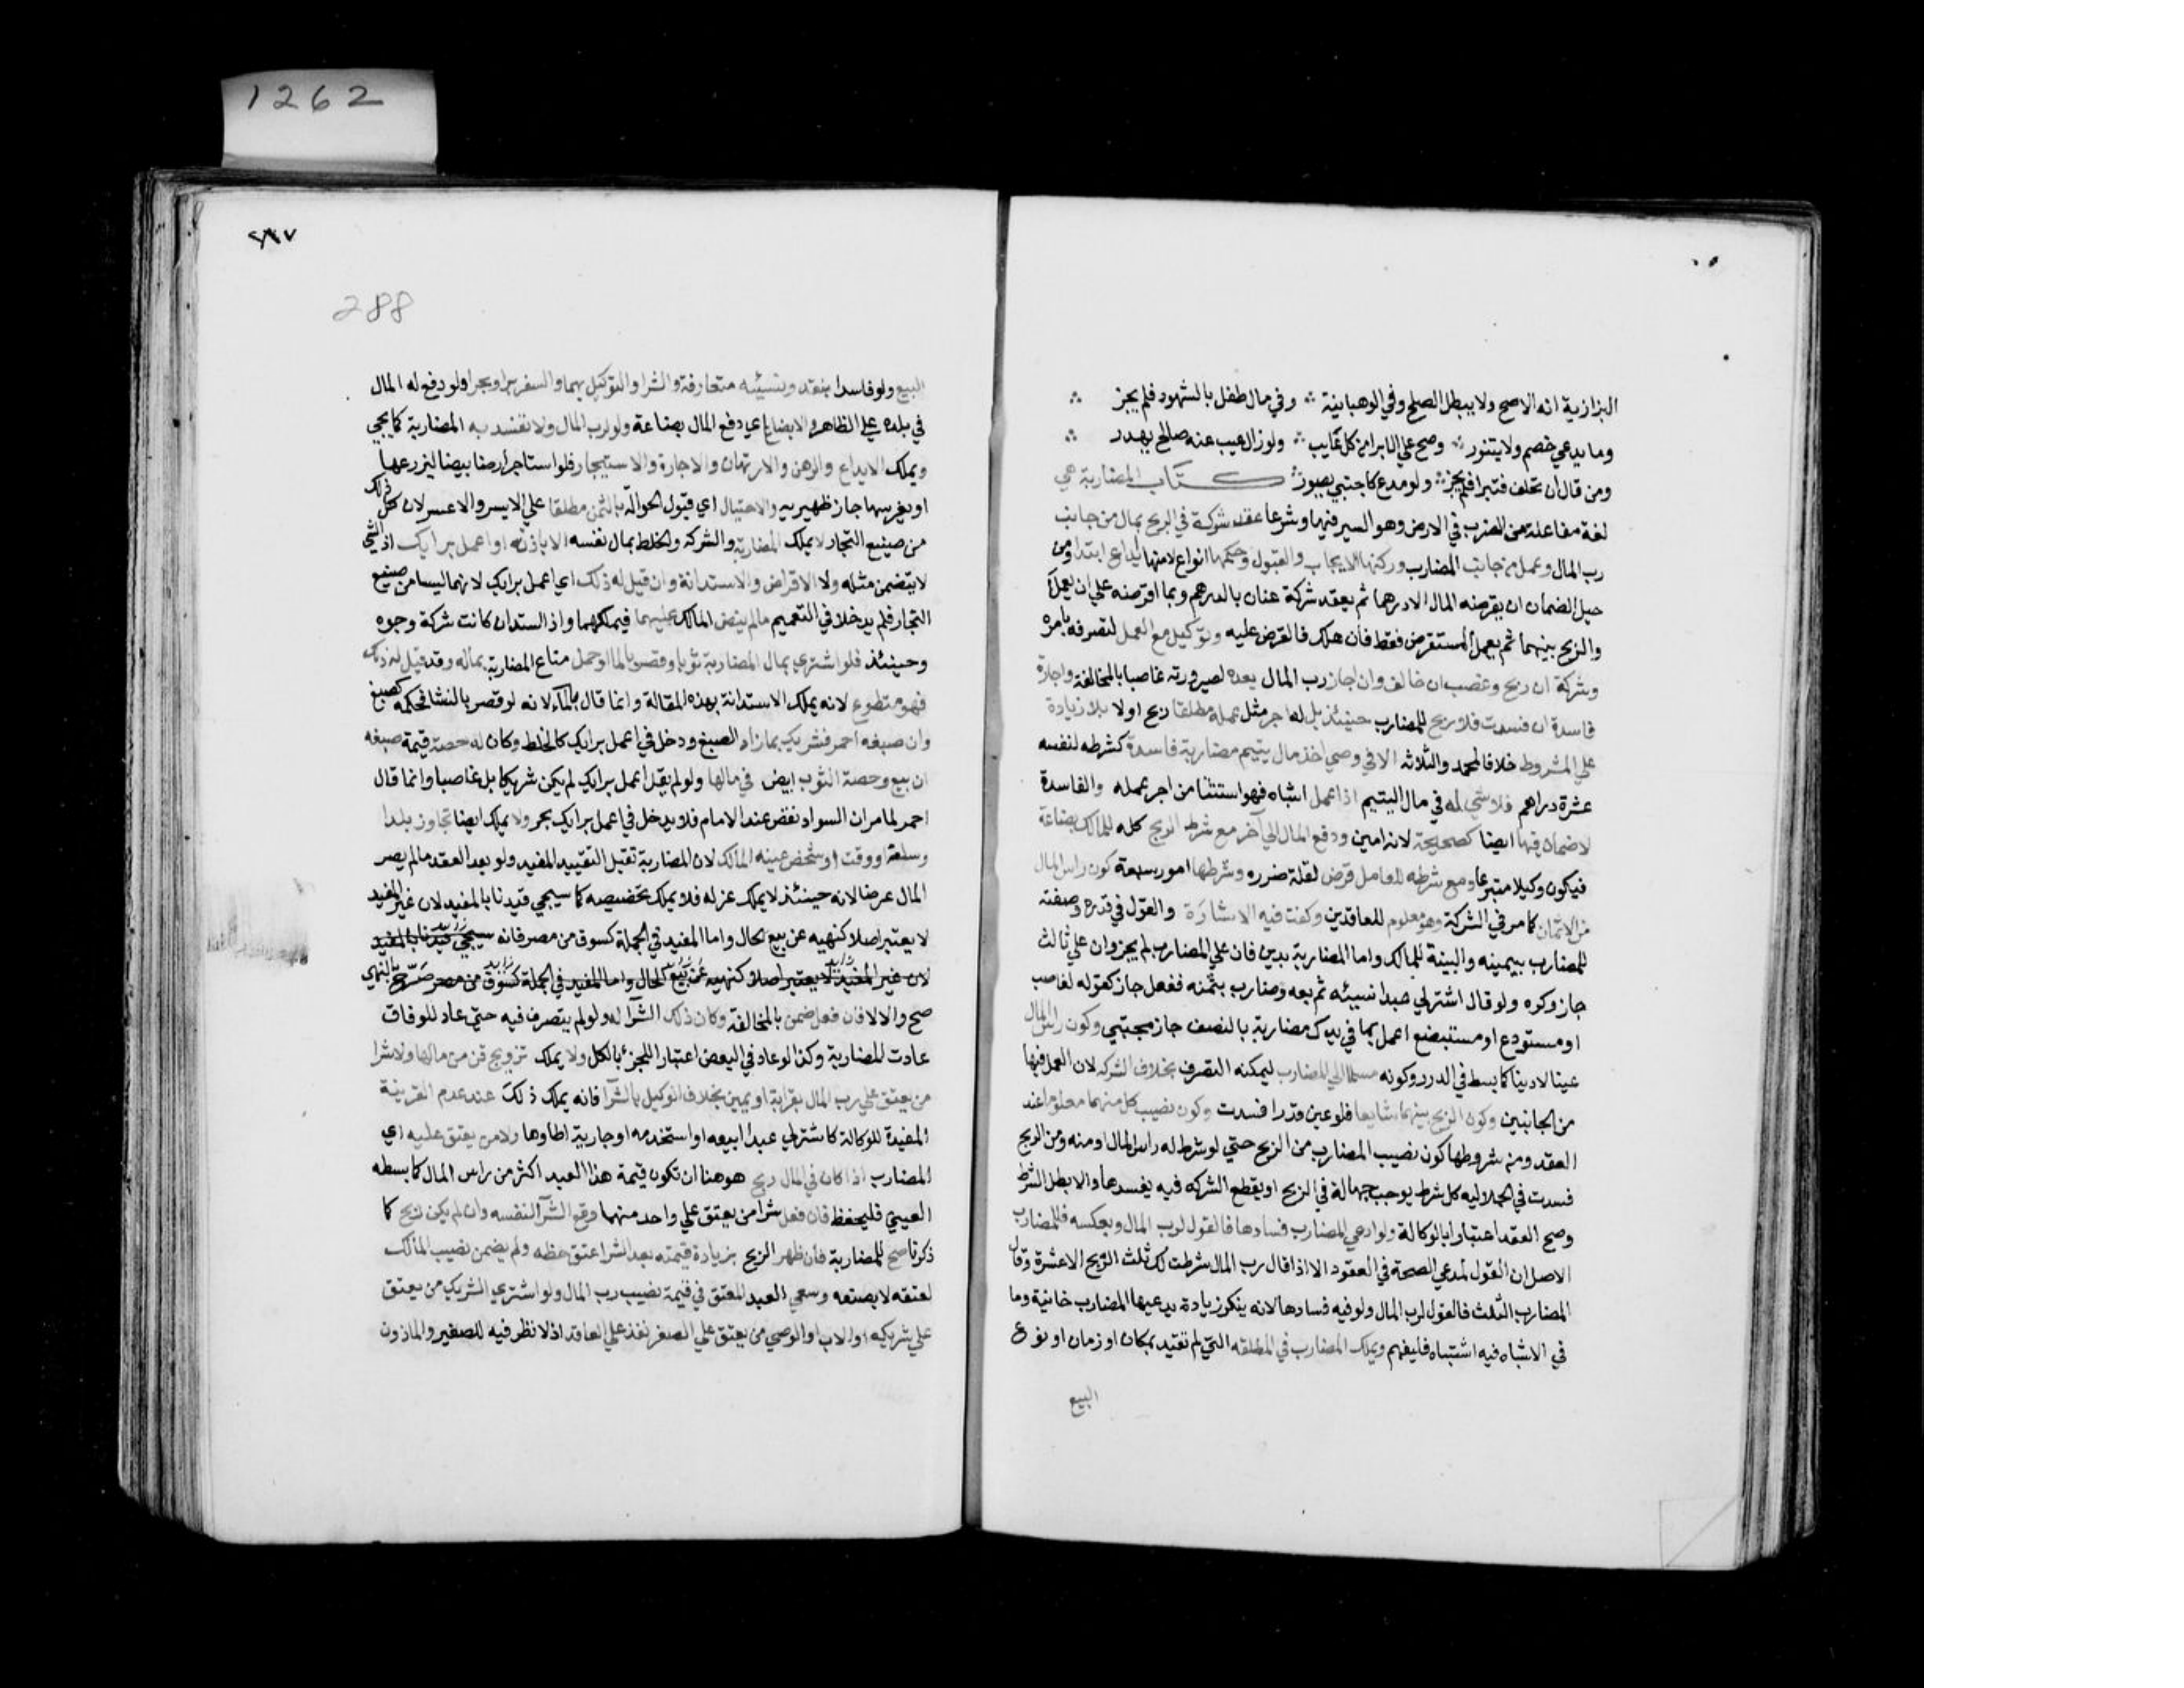 1262
البزازية انه الاصح ولا يبطل الصلح وفي الوهبانية ∴ وفي مال طفل بالشهود فلم يجز ∴
وما يدعي خصم ولا يتنور ∴ وصح علي الابرا من كل غايب ∴ ولو زال عيب عنه صالح يهدر ∴
ومن قال ان تحلف فتبرا فلم يجز ∴ ولو مدع كاجنبي يصور ∴ كتاب المضاربة هي
لغة مفاعلة من الضرب في الارض وهو السير فيها وشرعا عقد شركة في الربح بمال من جانب
رب المال وعمل من جانب المضارب وركنها الايجاب والقبول وحكمها انواع لانها ايداع ابتدا ومن
حيل الضمان ان يقرضه المال الا درهما ثم يعقد شركة عنان بالدرهم وبما اقرضه علي ان يعملا
والربح بينهما ثم يعمل المستقرض فقط فان هلك فالقرض عليه وتوكيل مع العمل لتصرفه بامره
وشركة ان ربح وغصب ان خالف وان اجاز رب المال بعده لصيرورته غاصبا بالمخالفة واجارة
فاسدة ان فسدت فلا ربح للمضارب حينئذ بل له اجر مثل عمله مطلقا ربح اولا بلا زيادة
علي المشروط خلافا لمحمد والثلاثة الا في وصي اخذ مال يتيم مضاربة فاسدة كشرطه لنفسه
عشرة دراهم فلا شي له في مال اليتيم اذا عمل اشباه فهو استثنا من اجر عمله والفاسدة
لا ضمان فيها ايضا كصحيحة لانه امين ودفع المال الي آخر مع شرط الربح كله للمالك بضاعة
فيكون وكيلا متبرعا ومع شرطه للعامل قرض لقلة ضرره وشرطها امور سبعة كون راس المال
من الاثمان كما مر في الشركة وهو معلوم للعاقدين وكفت فيه الاشارة والقول في قدره وصفته
للمضارب بيمينه والبينة للمالك واما المضاربة بدين فان علي المضارب لم يجز وان علي ثالث
جاز وكره ولو قال اشتر لي عبدا نسيئة ثم بعه وضارب بثمنه ففعل جاز كقوله لغاصب
او مستودع او مستبضع اعمل بما في يدك مضاربة بالنصف جاز مجتبي وكون راس المال
عينا لا دينا كما بسط في الدرر وكونه مسلما الي المضارب ليمكنه التصرف بخلاف الشركة لان العمل فيها
من الجانبين وكون الربح بينهما شايعا فلو عين قدرا فسدت وكون نصيب كل منهما معلوما عند
العقد ومن شروطها كون نصيب المضارب من الربح حتي لو شرط له راس المال او منه ومن الربح
فسدت في الجلالية كل شرط يوجب جهالة في الربح او يقطع الشركة فيه يفسدها والا بطل الشرط
وصح العقد اعتبارا بالوكالة ولو ادعي المضارب فسادها فالقول لرب المال وبعكسه فللمضارب
الاصل ان القول لمدعي الصحة في العقود الا اذا قال رب المال شرطت لك ثلث الربح الا عشرة وقال
المضارب الثلث فالقول لرب المال ولو فيه فسادها لانه ينكر زيادة يدعيها المضارب خانية وما
في الاشباه فيه اشتباه فليفهم ويملك المضارب في المطلقة التي لم تقيد بمكان او زمان او نوع
البيع
288
البيع ولو فاسدا بنقد ونسيئة متعارفة والشرا والتوكيل بهما والسفر برا وبحرا ولو دفع له المال
في بلده علي الظاهر والابضاع اي دفع المال بضاعة ولو لرب المال ولا تفسد به المضاربة كما يجي
ويملك الايداع والرهن والارتهان والاجارة والاستيجار فلو استاجر ارضا بيضا ليزرعها
او يغرسها جاز ظهيرية والاحتيال اي قبول الحوالة بالثمن مطلقا علي الايسر والاعسر لان كل ذلك
من صنيع التجار لا يملك المضاربة والشركة والخلط بمال نفسه الا باذن او اعمل برايك اذ الشي
لا يتضمن مثله ولا الاقراض والاستدانة وان قيل له ذلك اي اعمل برايك لانهما ليسا من صنيع
التجار فلم يدخلا في التعميم مالم ينص المالك عليهما فيملكهما واذا استدان كانت شركة وجوه
وحينئذ فلو اشتري بمال المضاربة ثوبا وقصر بالما او حمل متاع المضاربة بماله وقد قيل له ذلك
فهو متطوع لانه يملك الاستدانة بهذه المقالة وانما قال بالماء لانه لو قصر بالنشا فحكمه كصبغ
وان صبغه احمر فشريك بما زاد الصبغ ودخل في اعمل برايك كالخلط وكان له حصة قيمة صبغه
ان بيع وحصة الثوب ابيض في مالها ولو لم يقل اعمل برايك لم يكن شريكا بل غاصبا وانما قال
احمر لما مر ان السواد نقص عند الامام فلا يدخل في اعمل برايك بحر ولا يملك ايضا تجاوز بلد
وسلعة ووقت او شخص عينه المالك لان المضاربة تقبل التقييد المفيد ولو بعد العقد مالم يصر
المال عرضا لانه حينئذ لا يملك عزله فلا يملك تخصيصه كما سيجي قيدنا بالمفيد لان غير المفيد
لا يعتبر اصلا كنهيه عن بيع الحال واما المفيد في الجملة كسوق من مصر فانه سيجي قيدنا بالمفيد
لان غير المفيد لا يعتبر اصلا كنهيه عن بيع الحال واما المفيد في الجملة كسوق من مصر صرح بالنهي
صح والا لا فان فعل ضمن بالمخالفة وكان ذلك الشرآ له ولو لم يتصرف فيه حتي عاد للوفاق
عادت للمضاربة وكذا لو عاد في البعض اعتبارا للجزء بالكل ولا يملك تزويج قن من مالها ولا شرا
من يعتق علي رب المال بقرابة او يمين بخلاف الوكيل بالشرآ فانه يملك ذلك عند عدم القرينة
المفيدة للوكالة كاشتر لي عبدا ابيعه او استخدمه او جارية اطاوها ولا من يعتق عليه اي
المضارب اذا كان في المال ربح هو هنا ان تكون قيمة هذا العبد اكثر من راس المال كما بسطه
العيني فليحفظ فان فعل شرا من يعتق علي واحد منهما وقع الشرآ لنفسه وان لم يكن ربح كما
ذكرنا صح للمضاربة فان ظهر الربح بزيادة قيمته بعد الشرا عتق حظه ولم يضمن نصيب المالك
لعتقه لا بصنعه وسعي العبد المعتق في قيمة نصيب رب المال ولو اشتري الشريك من يعتق
علي شريكه او الاب او الوصي من يعتق علي الصغر نفذ علي العاقد اذ لا نظر فيه للصغير والماذون